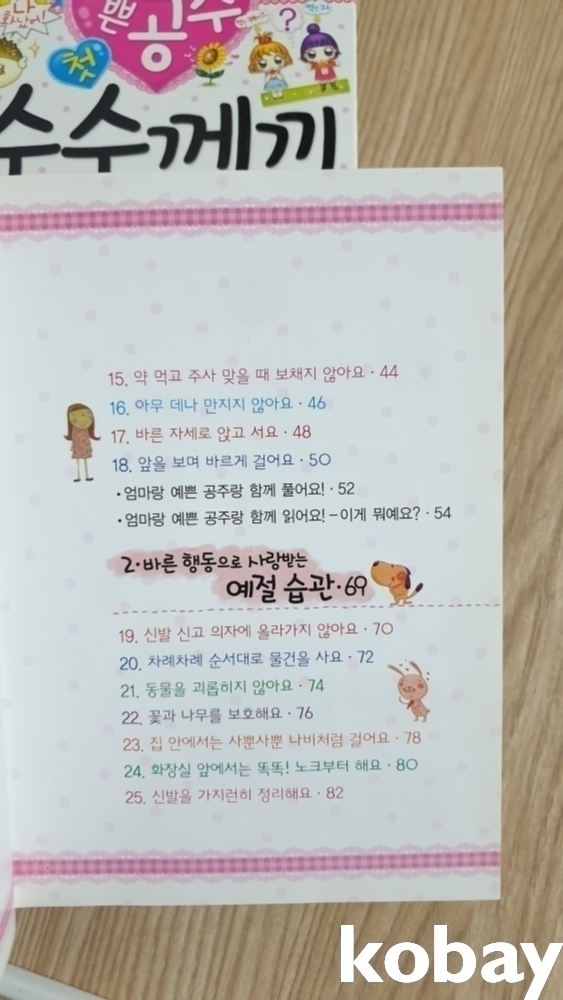 나
화났어!
쁜 공주
첫
?
수수께끼
15. 약 먹고 주사 맞을 때 보채지 않아요 · 44
16. 아무 데나 만지지 않아요 · 46
17. 바른 자세로 앉고 서요 · 48
18. 앞을 보며 바르게 걸어요 · 50
· 엄마랑 예쁜 공주랑 함께 풀어요! · 52
· 엄마랑 예쁜 공주랑 함께 읽어요! – 이게 뭐예요? · 54
2 · 바른 행동으로 사랑받는
예절 습관 · 69
19. 신발 신고 의자에 올라가지 않아요 · 70
20. 차례차례 순서대로 물건을 사요 · 72
21. 동물을 괴롭히지 않아요 · 74
22. 꽃과 나무를 보호해요 · 76
23. 집 안에서는 사뿐사뿐 나비처럼 걸어요 · 78
24. 화장실 앞에서는 똑똑! 노크부터 해요 · 80
25. 신발을 가지런히 정리해요 · 82
kobay